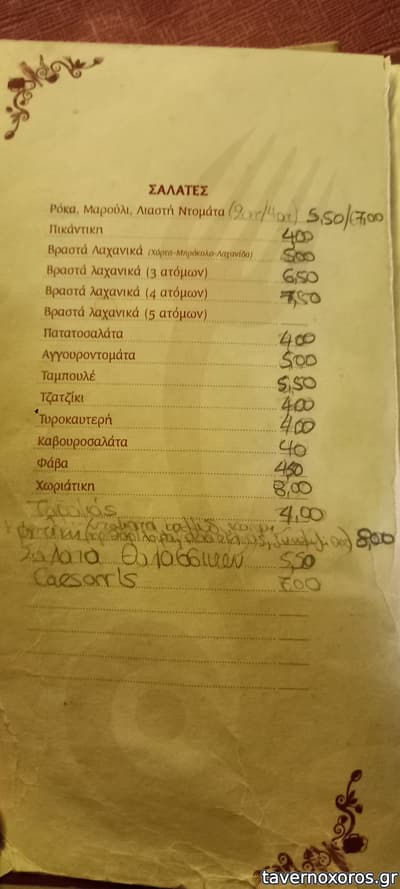 ΣΑΛΑΤΕΣ
Ρόκα, Μαρούλι, Λιαστή Ντομάτα (2ατ/4ατ) 5,50/7,00
Πικάντικη 4,00
Βραστά Λαχανικά (Χόρτα-Μπρόκολο-Λαχανίδα) 5,00
Βραστά λαχανικά (3 ατόμων) 6,50
Βραστά λαχανικά (4 ατόμων) 7,50
Βραστά λαχανικά (5 ατόμων)
Πατατοσαλάτα 4,00
Αγγουροντομάτα 5,00
Ταμπουλέ 5,50
Τζατζίκι 4,00
Τυροκαυτερή 4,00
Καβουροσαλάτα 40
Φάβα
Χωριάτικη 8,00
4,00
8,00
Σαλατα θαλασσινων 5,50
Caesar's 7.00
tavernoxoros.gr